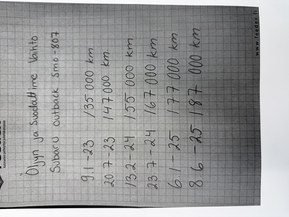 Öljyn ja suodattime Vaihto
SubarU outback Smo-807
9.1-23 135 000 km
20.7-23 147 000 km.
13.2-24 155 000 km
23.7-24 167 000 km
6.1-25 177 000 km
8.6-25 187 000 km